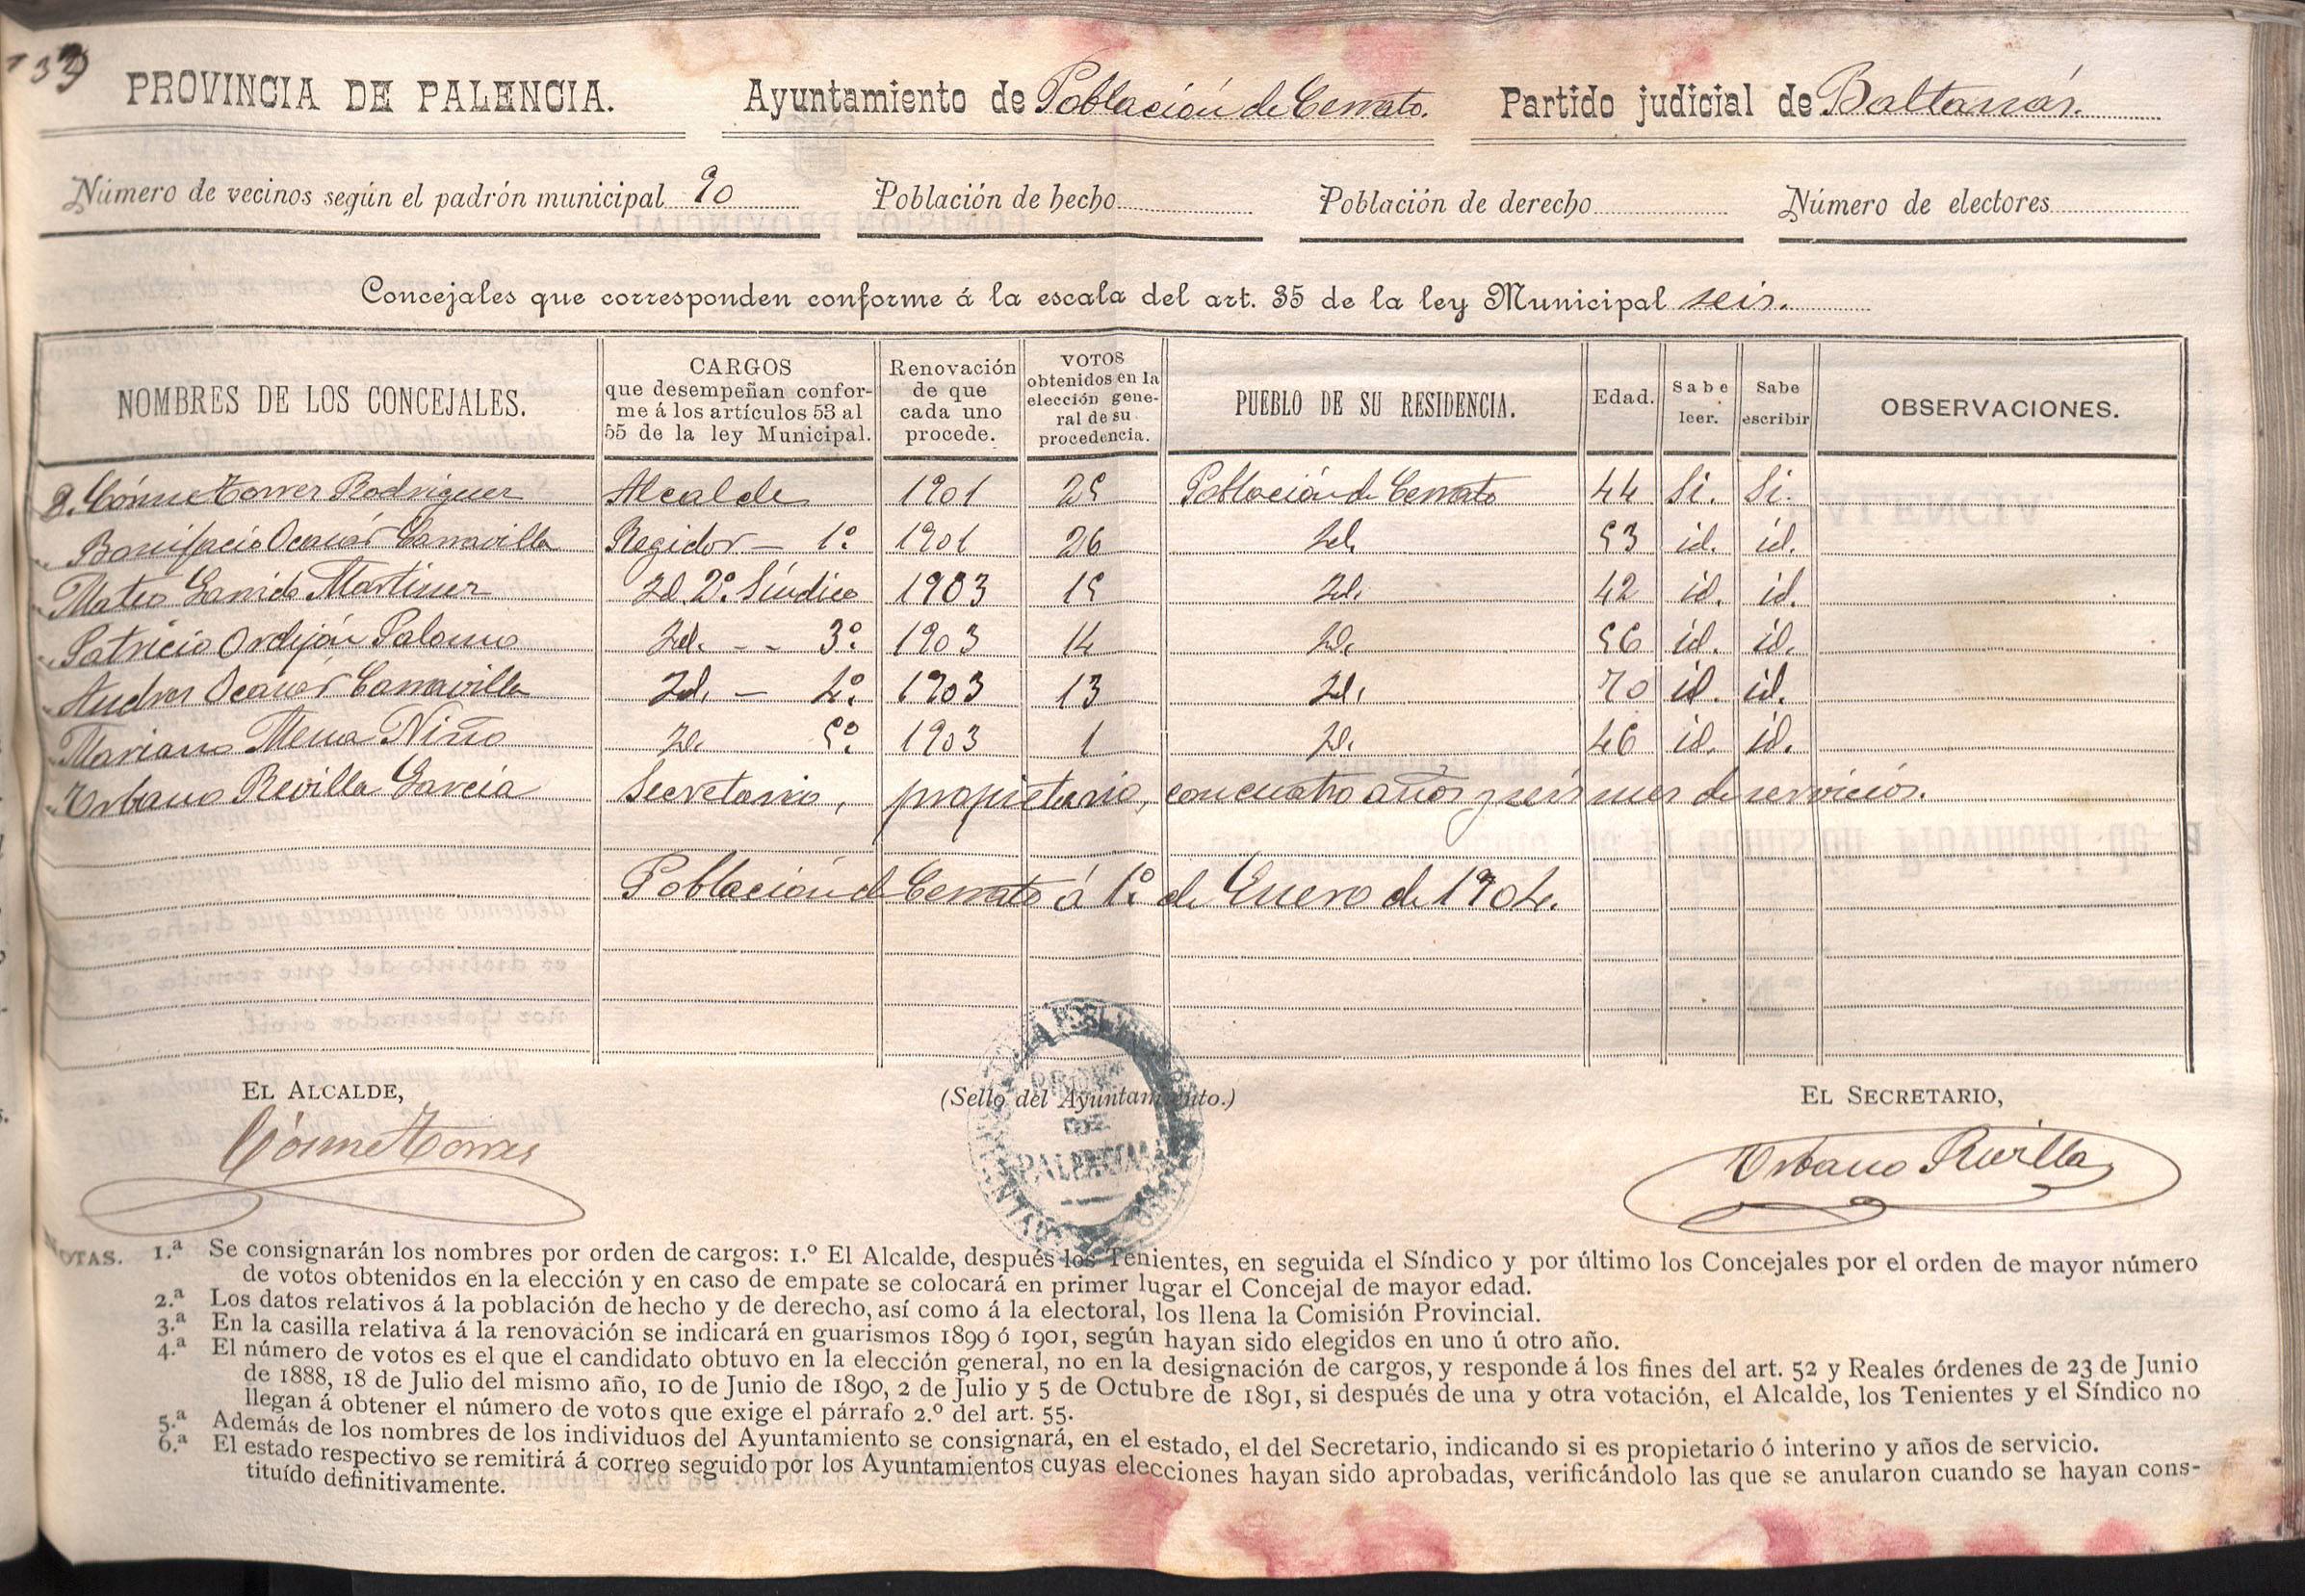 133
PROVINCIA DE PALENCIA. Ayuntamiento de Población de Cerrato. Partido judicial de Baltanás.
Número de vecinos según el padrón municipal 90 Población de hecho Población de derecho Número de electores
Concejales que corresponden conforme á la escala del art. 35 de la ley Municipal seis.
NOMBRES DE LOS CONCEJALES. CARGOS que desempeñan confor- Renovación de que VOTOS obtenidos en la PUEBLO DE SU RESIDENCIA. Edad. Sabe Sabe OBSERVACIONES.
me á los artículos 53 al cada uno elección gene- leer. escribir
55 de la ley Municipal. procede. ral de su
procedencia.
D. Cósme Torres Rodriguez Alcalde 1901 25 Población de Cerrato 44 Si. Si.
" Bonifacio Ocasar Carravilla Regidor — 1º 1901 26 Id. 53 id. id.
" Mateo Garrido Martinez Id. 2º Síndico 1903 15 Id. 42 id. id.
" Patricio Ordejón Palomo Id. - - 3º 1903 14 Id. 56 id. id.
" Andres Ocasar Carravilla Id. — 4º 1903 13 Id. 70 id. id.
" Mariano Mena Niño Id. 5º 1903 1 Id. 46 id. id.
" Urbano Revilla Garcia Secretario, propietario, con cuatro años y seis mes de servicios.
Población de Cerrato á 1º de Enero de 1904.
EL ALCALDE, (Sello del Ayuntamiento.) EL SECRETARIO,
Cósme Torres PALENCIA Urbano Revilla
NOTAS. 1.ª Se consignarán los nombres por orden de cargos: 1.º El Alcalde, después los Tenientes, en seguida el Síndico y por último los Concejales por el orden de mayor número
de votos obtenidos en la elección y en caso de empate se colocará en primer lugar el Concejal de mayor edad.
2.ª Los datos relativos á la población de hecho y de derecho, así como á la electoral, los llena la Comisión Provincial.
3.ª En la casilla relativa á la renovación se indicará en guarismos 1899 ó 1901, según hayan sido elegidos en uno ú otro año.
4.ª El número de votos es el que el candidato obtuvo en la elección general, no en la designación de cargos, y responde á los fines del art. 52 y Reales órdenes de 23 de Junio
de 1888, 18 de Julio del mismo año, 10 de Junio de 1890, 2 de Julio y 5 de Octubre de 1891, si después de una y otra votación, el Alcalde, los Tenientes y el Síndico no
llegan á obtener el número de votos que exige el párrafo 2.º del art. 55.
5.ª Además de los nombres de los individuos del Ayuntamiento se consignará, en el estado, el del Secretario, indicando si es propietario ó interino y años de servicio.
6.ª El estado respectivo se remitirá á correo seguido por los Ayuntamientos cuyas elecciones hayan sido aprobadas, verificándolo las que se anularon cuando se hayan cons-
tituído definitivamente.